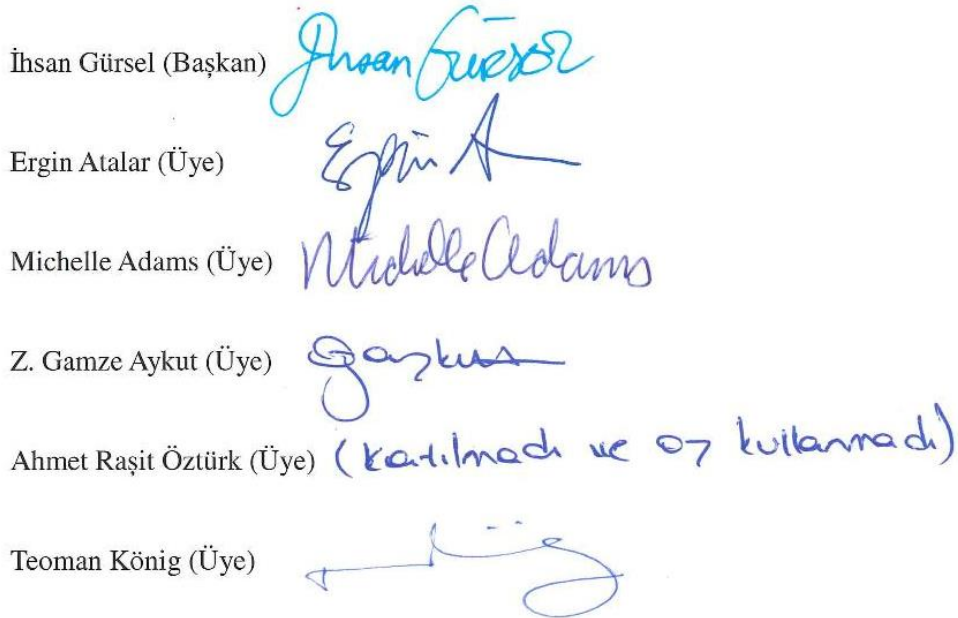 İhsan Gürsel (Başkan) İhsan Gürsel
Ergin Atalar (Üye) Ergin A
Michelle Adams (Üye) Michelle Adams
Z. Gamze Aykut (Üye) Gaykut
Ahmet Raşit Öztürk (Üye) (Katılmadı ve oy kullanmadı)
Teoman König (Üye)